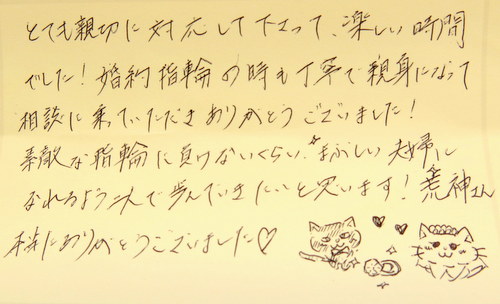 とても親切に対応して下さって、楽しい時間
でした！婚約指輪の時も丁寧で親身になって
相談に乗っていただきありがとうございました！
素敵な指輪に負けないくらい、まぶしい夫婦に
なれるよう二人で歩んでいきたいと思います！荒神さん
本当にありがとうございました♡